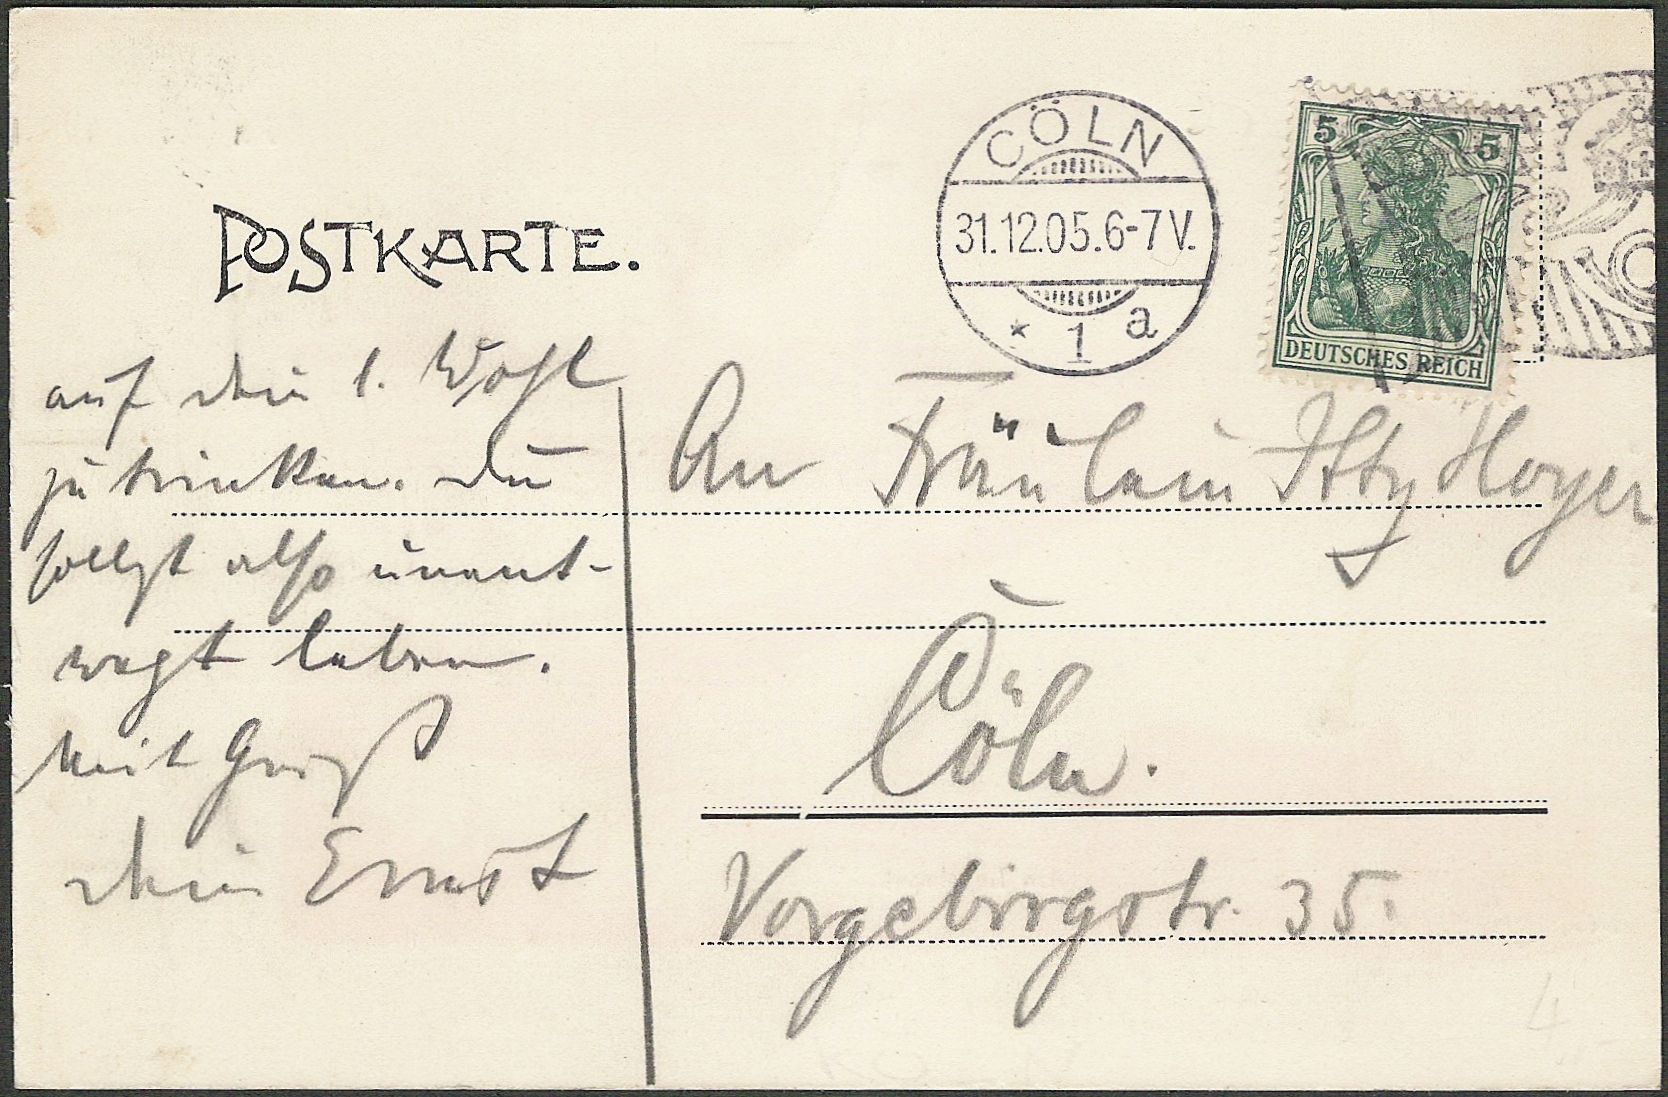 POSTKARTE.
CÖLN
31.12.05.6-7V.
* 1 a
5 5
DEUTSCHES REICH
auf dein l. Wohl
zu trinken. Du
sollst also unent-
wegt leben.
Mit Gruß
dein Ernst
An Fräulein Hoyer
Cöln.
Vorgebirgstr. 35.